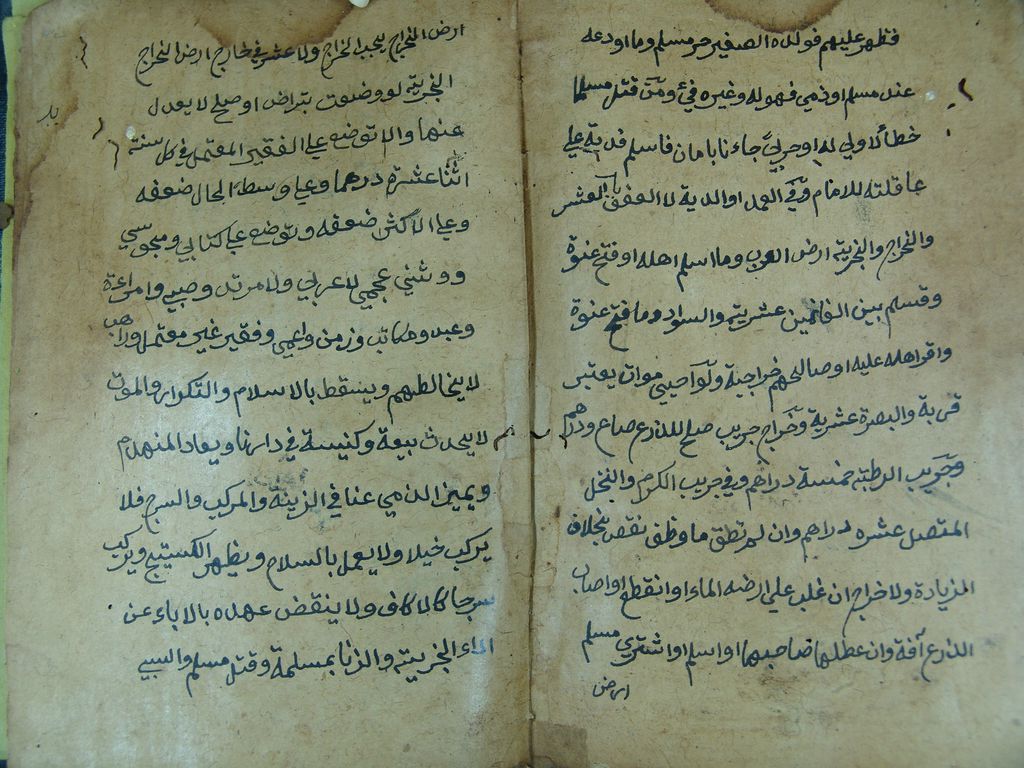 فظهر عليهم فولده الصغير حر مسلم وما اودعه
عند مسلم او ذمي فهو له وغيره في ومن قتل مسلما
خطأ لا ولي له او حربي جاءنا بامان فاسلم فديته علي
عاقلته للامام وفي العمد او الدية لا العفو باب العشر
والخراج والجزية ارض العرب وما اسلم اهله او فتح عنوة
وقسم بين الغانمين عشرية والسواد وما فتح عنوة
واقر اهله عليه او صالحهم خراجية ولو احيي موات يعتبر
قربه والبصرة عشرية وخراج جريب صلح للزرع صاع ودرهم
وجريب الرطبة خمسة دراهم وفي جريب الكرم والنخل
المتصل عشره دراهم وان لم تطق ما وظف نقص بخلاف
الزيادة ولا خراج ان غلب علي ارضه الماء او انقطع او اصاب
الزرع آفة وان عطلها صاحبها او اسلم او اشتري مسلم
ارض
ارض الخراج يجب الخراج ولا عشر في خارج ارض الخراج
الجزية لو وضعت بتراض او صلح لا يعدل
عنها والا توضع علي الفقير المعتمل في كل سنة
اثنا عشرة درهما وعلي وسط الحال ضعفه
وعلي الاكثر ضعفه وتوضع علي كتابي ومجوسي
ووثني عجمي لا عربي ولا مرتد وصبي وامراءة
وعبد ومكاتب وزمن واعمي وفقير غير معتمل وراهب
لا يخالطهم ويسقط بالاسلام والتكرار والموت
لا يحدث بيعة وكنيسة في دارنا ويعاد المنهدم
ويميز الذمي عنا في الزينة والمركب والسرج فلا
يركب خيلا ولا يعمل بالسلام ويظهر الكستيج ويركب
سرجا كالاكاف ولا ينقض عهده بالاباء عن
اداء الجزية والزنا بمسلمة وقتل مسلم والسبي